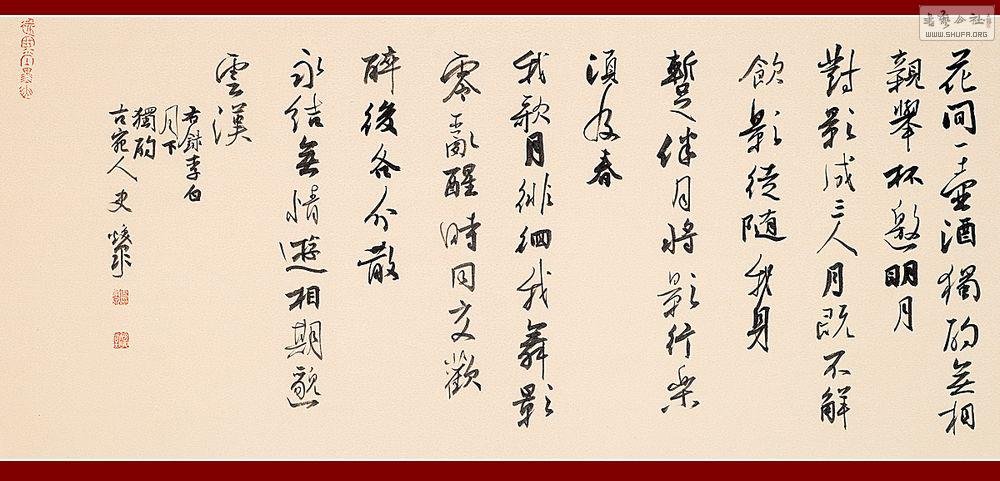 花間一壺酒獨酌無相
親舉杯邀明月
對影成三人月既不解
飲影徒隨我身
暫伴月將影行樂
須及春
我歌月徘徊我舞影
零亂醒時同交歡
醉後各分散
永結無情遊相期邈
雲漢
右錄李白
月下
獨酌
古宛人史
書藝公社
WWW.SHUFA.ORG